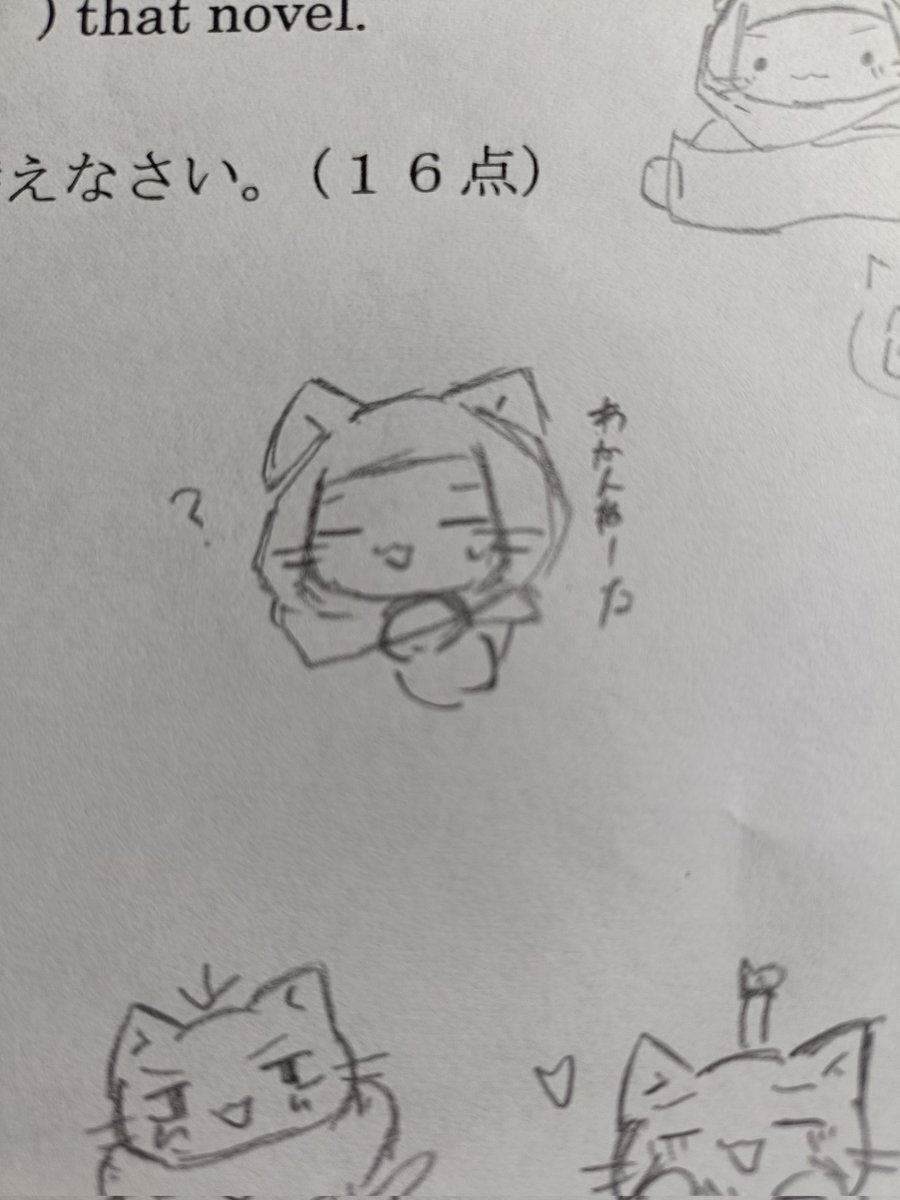 ) that novel.
えなさい。（１６点）
?
わかんねーな